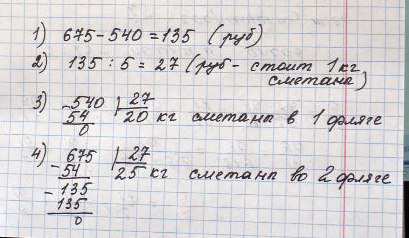 1) 675-540=135 (руб)
2) 135:5=27 (руб- стоит 1кг
сметана)
3) -540 | 27
54 20 кг сметана в 1 фляге
0
4) -675 | 27
54 25 кг сметана во 2 фляге
-135
135
0